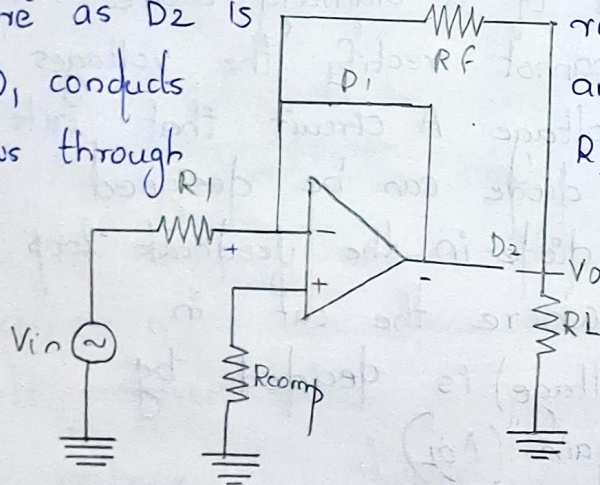 re as D2 is
D1 conducts
us through
RF
D1
R1
+
-
+
-
D2
Vo
Vin
~
Rcomp
RL
R